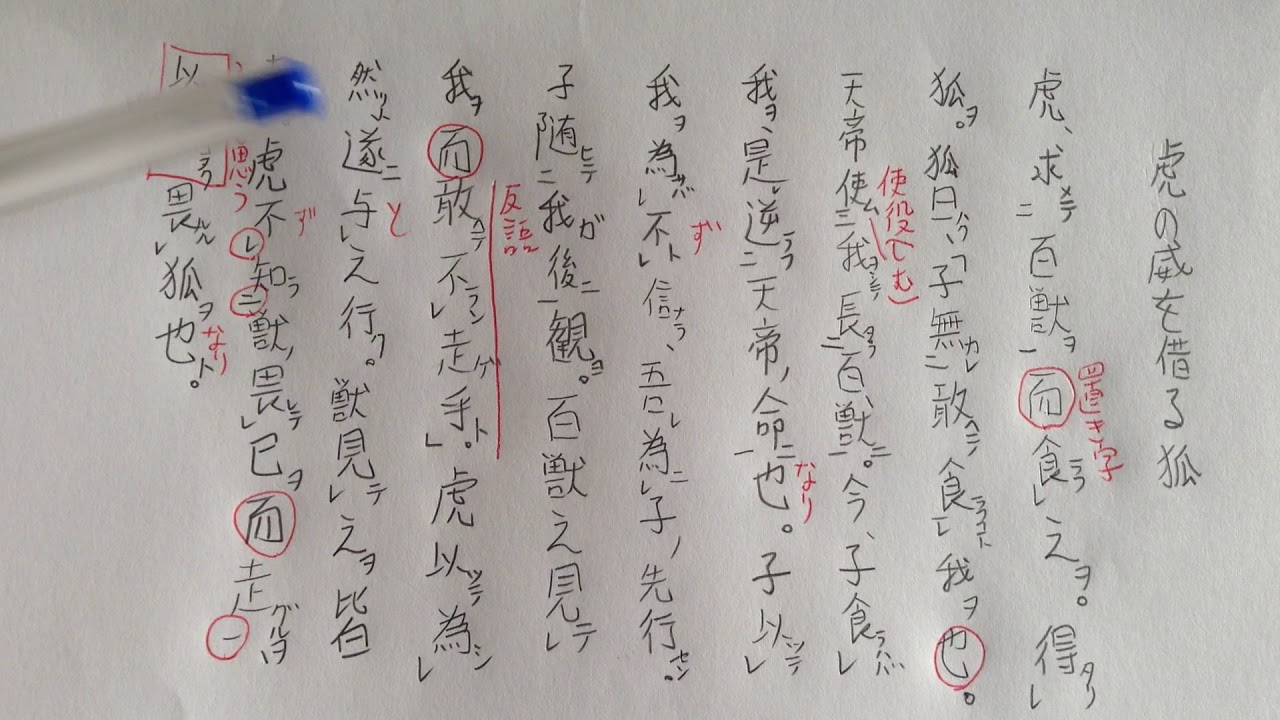 虎の威を借る狐
虎、求メテ二百獣ヲ一而食ラフレ之ヲ。得タリレ
置き字
狐ヲ。狐曰ハク、「子無カレ二敢ヘテ食ラフコトレ我ヲ也。
天帝使ム三我ヲシテ長タラ二百獣ニ一。今、子食ラハバレ
使役(しむ)
我ヲ、是レ逆ラフ二天帝ノ命ニ一也。子以ツテレ
なり
我ヲ為サバレ不トレ信ナラ、吾レ為ニレ子ノ先行セン。
ず
子随ヒテ二我ガ後ニ一観ヨ。百獣之見テレ
我ヲ而敢ヘテ不ランレ走ゲ乎トレ。虎以ツテ為シレ
反語
然リト、遂ニ与レ之行ク。獣見テレ之ヲ皆
と
虎不レ知ラ二獣ノ畏レテレ己ヲ而走グルヲ一
ず
以 畏ルトレ狐ヲ也ト。
思う
なり